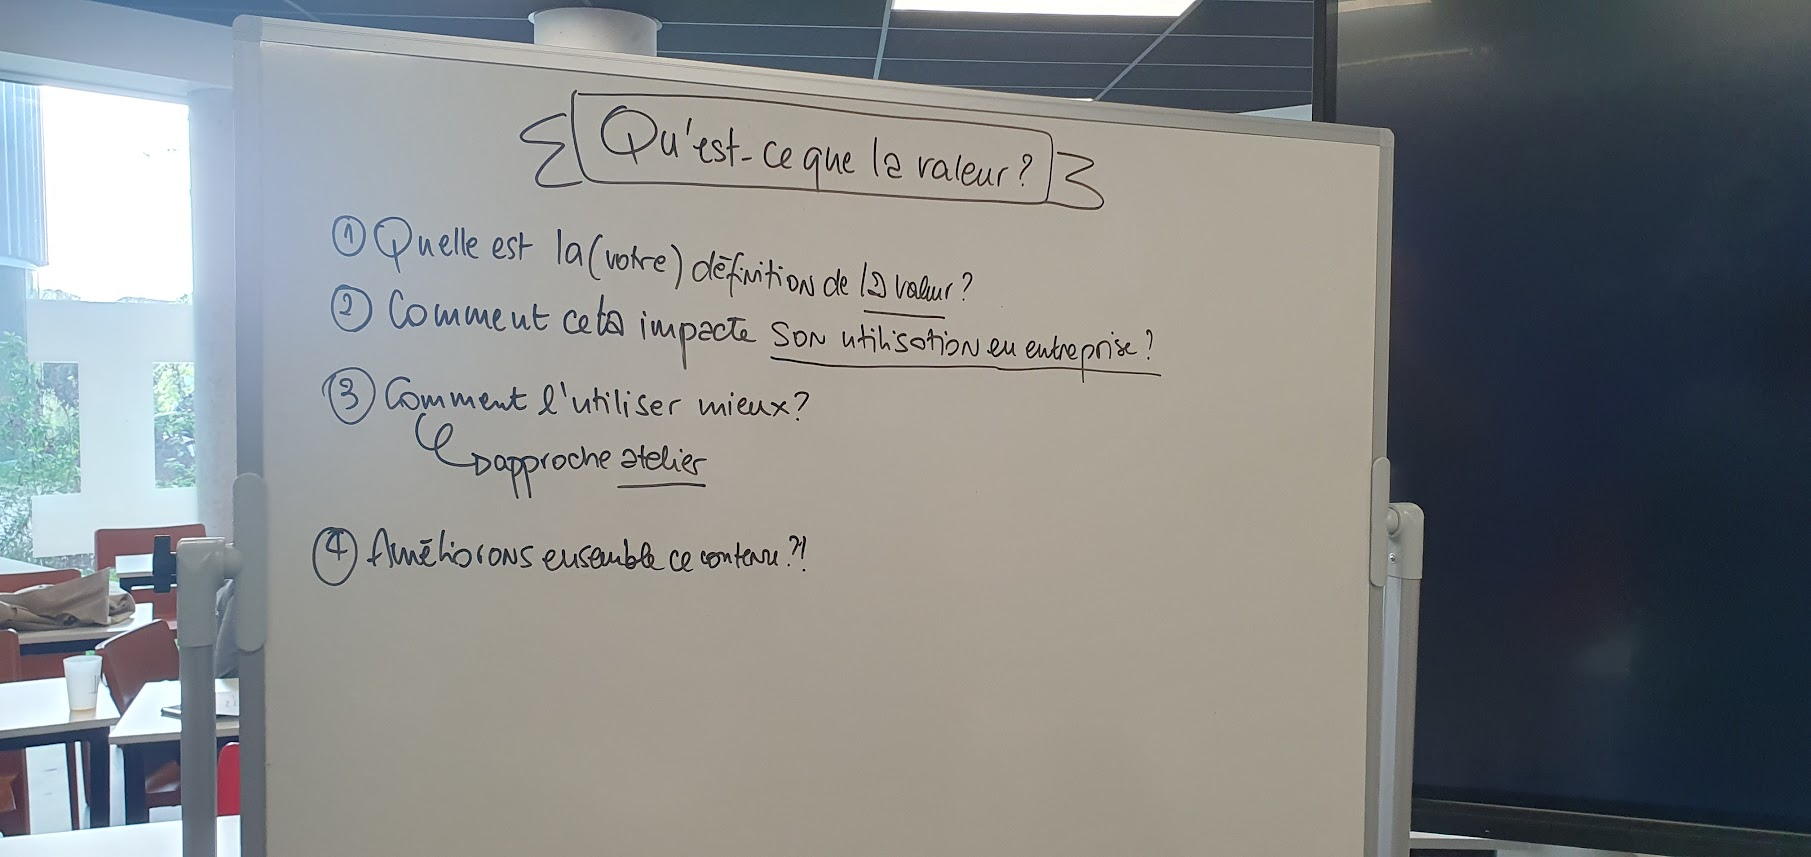 Qu'est-ce que la valeur?
① Quelle est la (votre) définition de la valeur?
② Comment cela impacte son utilisation en entreprise?
③ Comment l'utiliser mieux?
approche atelier
④ Améliorons ensemble ce contenu?!